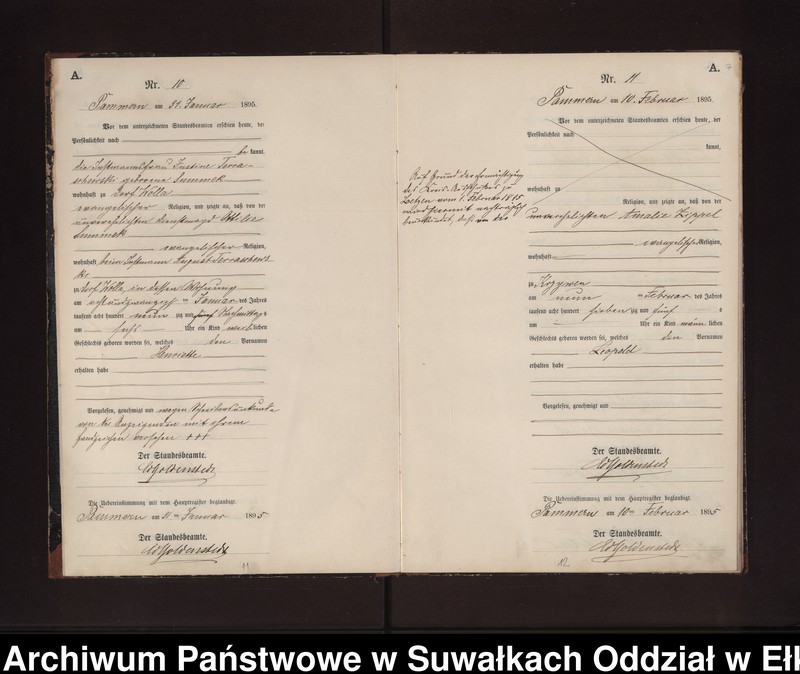 A.
Nr. 10
Pammern am 31. Januar 1895.
Vor dem unterzeichneten Standesbeamten erschien heute, der
Persönlichkeit nach
be kannt,
die Instmannsfrau Justine
geborene
wohnhaft zu Dorf Wolla
evangelischer Religion, und zeigte an, daß von der
unverehelichten Dienstmagd
evangelischer Religion,
wohnhaft beim Instmann August
zu Dorf Wolla, in dessen Wohnung
am Januar des Jahres
tausend acht hundert neun zig und fünf Nachmittags
um Uhr ein Kind weiblichen
Geschlechts geboren worden sei, welches den Vornamen
Henriette
erhalten habe
Vorgelesen, genehmigt und wegen Schreibensunkunde
von der Anzeigenden mit ihrem
Handzeichen versehen +++
Der Standesbeamte.
Die Uebereinstimmung mit dem Hauptregister beglaubigt.
Pammern am 31ten Januar 1895
Der Standesbeamte.
11
A.
Nr. 11
Pammern am 10. Februar 1895.
Vor dem unterzeichneten Standesbeamten erschien heute, der
Persönlichkeit nach
kannt,
wohnhaft zu
Religion, und zeigte an, daß von der
unverehelichten Amalie Zippel
evangelischer Religion,
wohnhaft
zu
am neun Februar des Jahres
tausend acht hundert sieben zig und fünf
um Uhr ein Kind männlichen
Geschlechts geboren worden sei, welches den Vornamen
Leopold
erhalten habe
Vorgelesen, genehmigt und
Der Standesbeamte.
Die Uebereinstimmung mit dem Hauptregister beglaubigt.
Pammern am 10ten Februar 1895
Der Standesbeamte.
Auf Grund der Ermächtigung
des Kreis-Ausschusses zu
Loetzen vom 1. Februar 1895
wird hiermit nachträglich
beurkundet, daß von der
12
Archiwum Państwowe w Suwałkach Oddział w Ełk